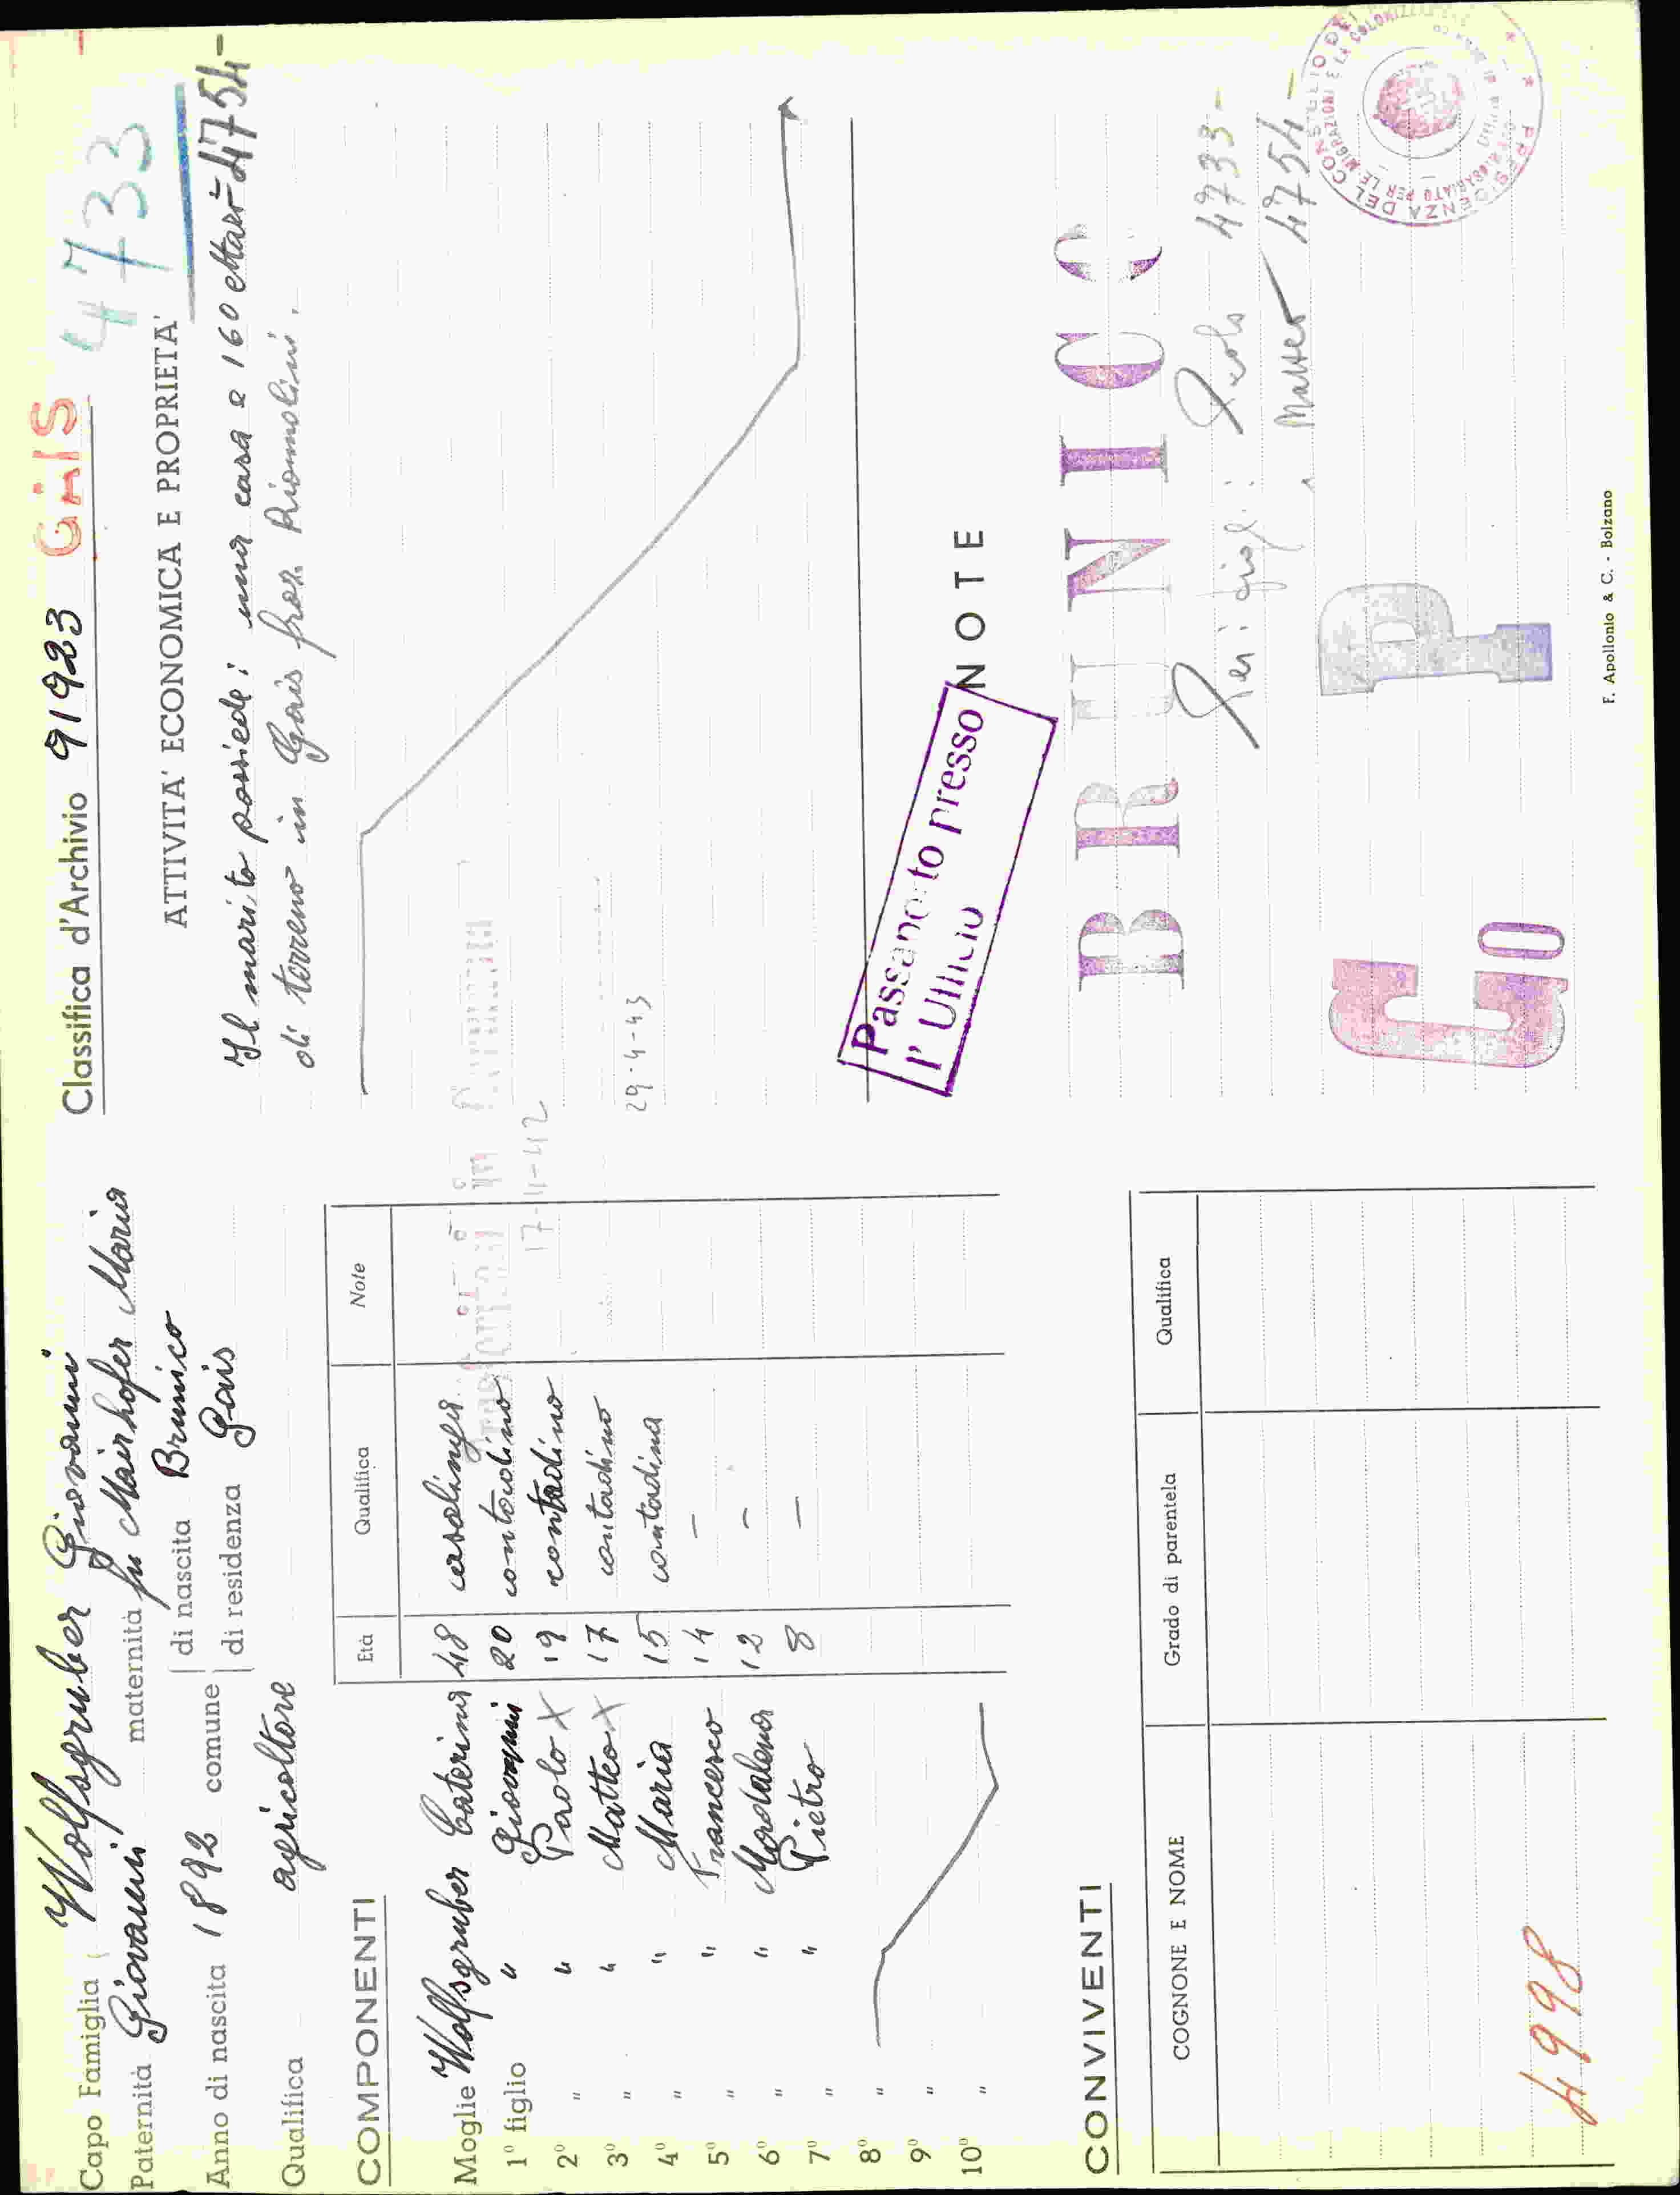 Capo Famiglia Wolfsgruber Giovanni
Paternità Giovanni maternità fu Mairhofer Maria
Anno di nascita 1892 comune di nascita Brunico
di residenza Gais
Qualifica agricoltore
COMPONENTI
Età Qualifica Note
Moglie Wolfsgruber Caterina 48 casalinga
1º figlio " Giovanni 20 contadino
2º " " Paolo X 19 contadino
3º " " Matteo X 17 contadino
4º " " Maria 15 contadina
5º " " Francesco 14 –
6º " " Maddalena 12 –
7º " " Pietro 8 –
8º "
9º "
10º "
17-11-42
29-4-43
CONVIVENTI
COGNONE E NOME Grado di parentela Qualifica
4998
Classifica d'Archivio 91923 GAIS 4733
ATTIVITA' ECONOMICA E PROPRIETA'
Il marito possiede: una casa e 160 ettari 4754-
di terreno in Gais fraz. Riomolini.
Passaporto presso
l' Ufficio
NOTE
BRUNICO
Per i figli: Paolo 4733-
" Matteo 4754-
Go P
PRESIDENZA DEL CONSIGLIO DEI
F. Apollonio & C. - Bolzano